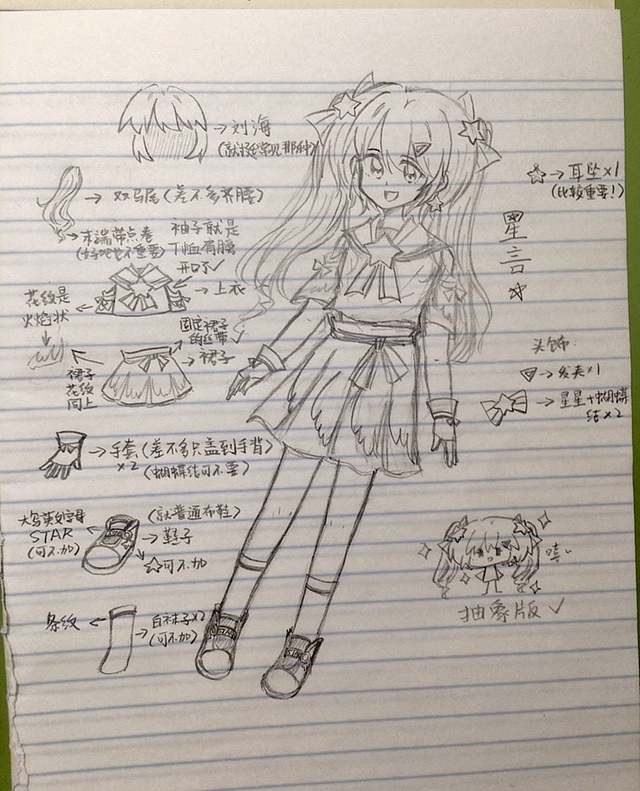 →刘海
(就挺常见那种)
→双马尾(差不多齐腰)
→末端带点卷
(好吧也不重要)
袖子就是
T恤有腰
开口了✓
→上衣
花纹是
火焰状
固定裙子
的丝带
→裙子
裙子
花纹
同上
→手套(差不多只盖到手背)
×2
(蝴蝶结可不要)
大写英文字母
STAR
(可不加)
(就普通布鞋)
→鞋子
☆可不加
条纹
→白袜子×2
(可不加)
→耳坠×1
(比较重要!)
星言☆
头饰:
→发夹×1
→星星+蝴蝶
结×2
抽象版✓
STAR